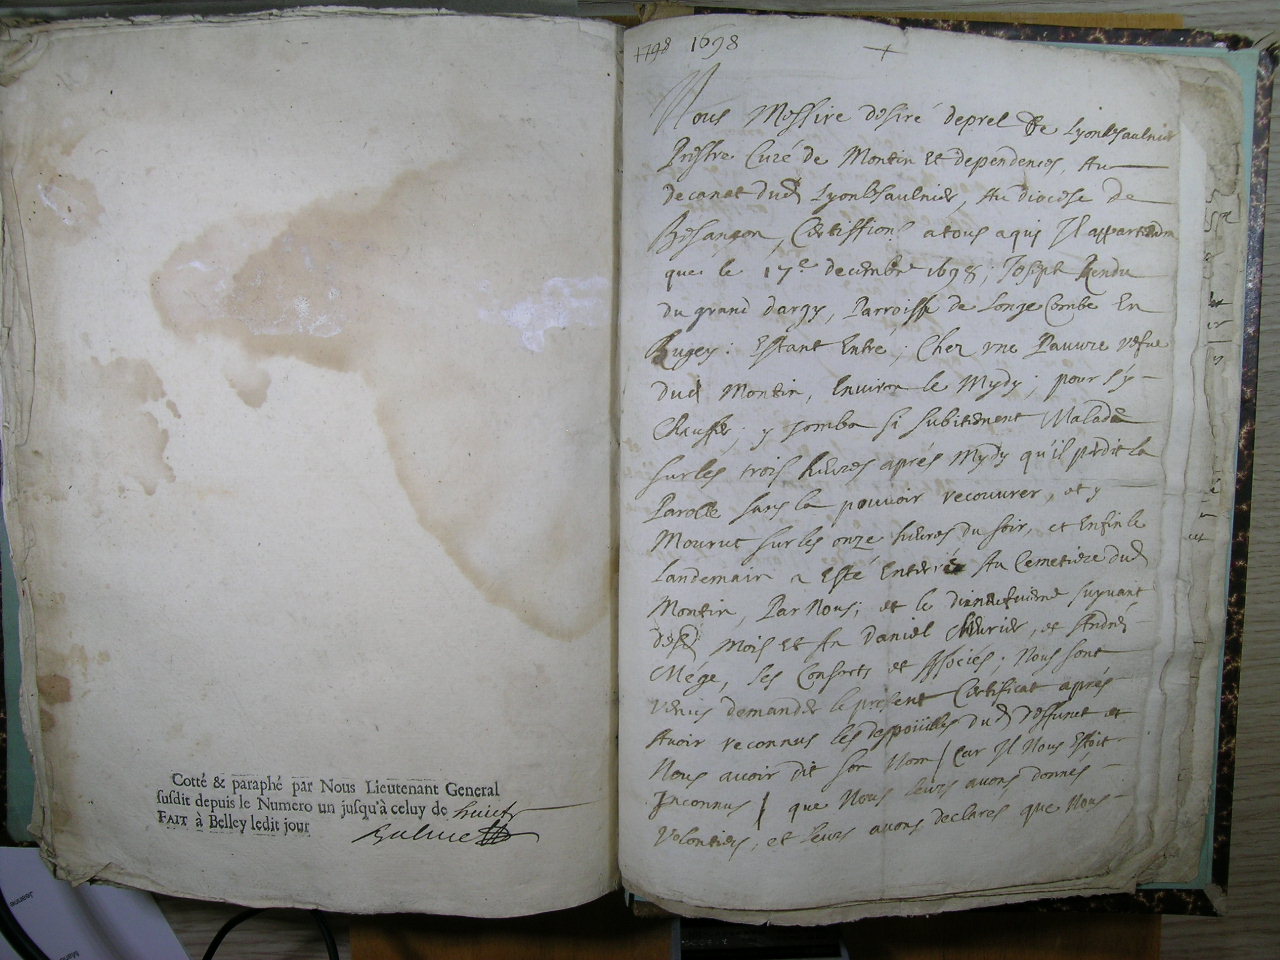 Cotté & paraphé par Nous Lieutenant General
susdit depuis le Numero un jusqu'à celuy de huict
FAIT à Belley ledit jour
1798 1698
Nous Messire desiré deprel De Lyonlsaulnier
Prestre Curé de Montin et dependences, Au
decanat dud Lyonlsaulnier, Au diocese de
Besançon, Certiffions a tous a qui Il appartiendra
que le 17e decembre 1698, Joseph Rendu
du grand dargy, Parroisse de Longe Combe En
Bugey: Estant Entré, Chez vne Pauvre vefue
dud Montin, Environ le Mydy; pour s'y
Chauffer, y tomba si subitement Malade
sur les trois heures aprés Mydy qu'il perdit la
Parolle sans la pouvoir recouurer, et y
Mourut sur les onze heures du soir, et Enfin le
Landemain a Esté Enterré Au Cemetiere dud
Montin, Par Nous; et le dixneufuieme suyuant
desd Mois et An Daniel Chevrier, et André
Mége, ses Consorts et Associés, Nous sont
venus demander le present Certificat aprés
Avoir reconnus les despoüilles dud deffunct et
Nous avoir dit son Nom / Car Il Nous Estoit
Inconnus / que Nous leurs avons donnés
Volontiers, et leurs avons declares que Nous